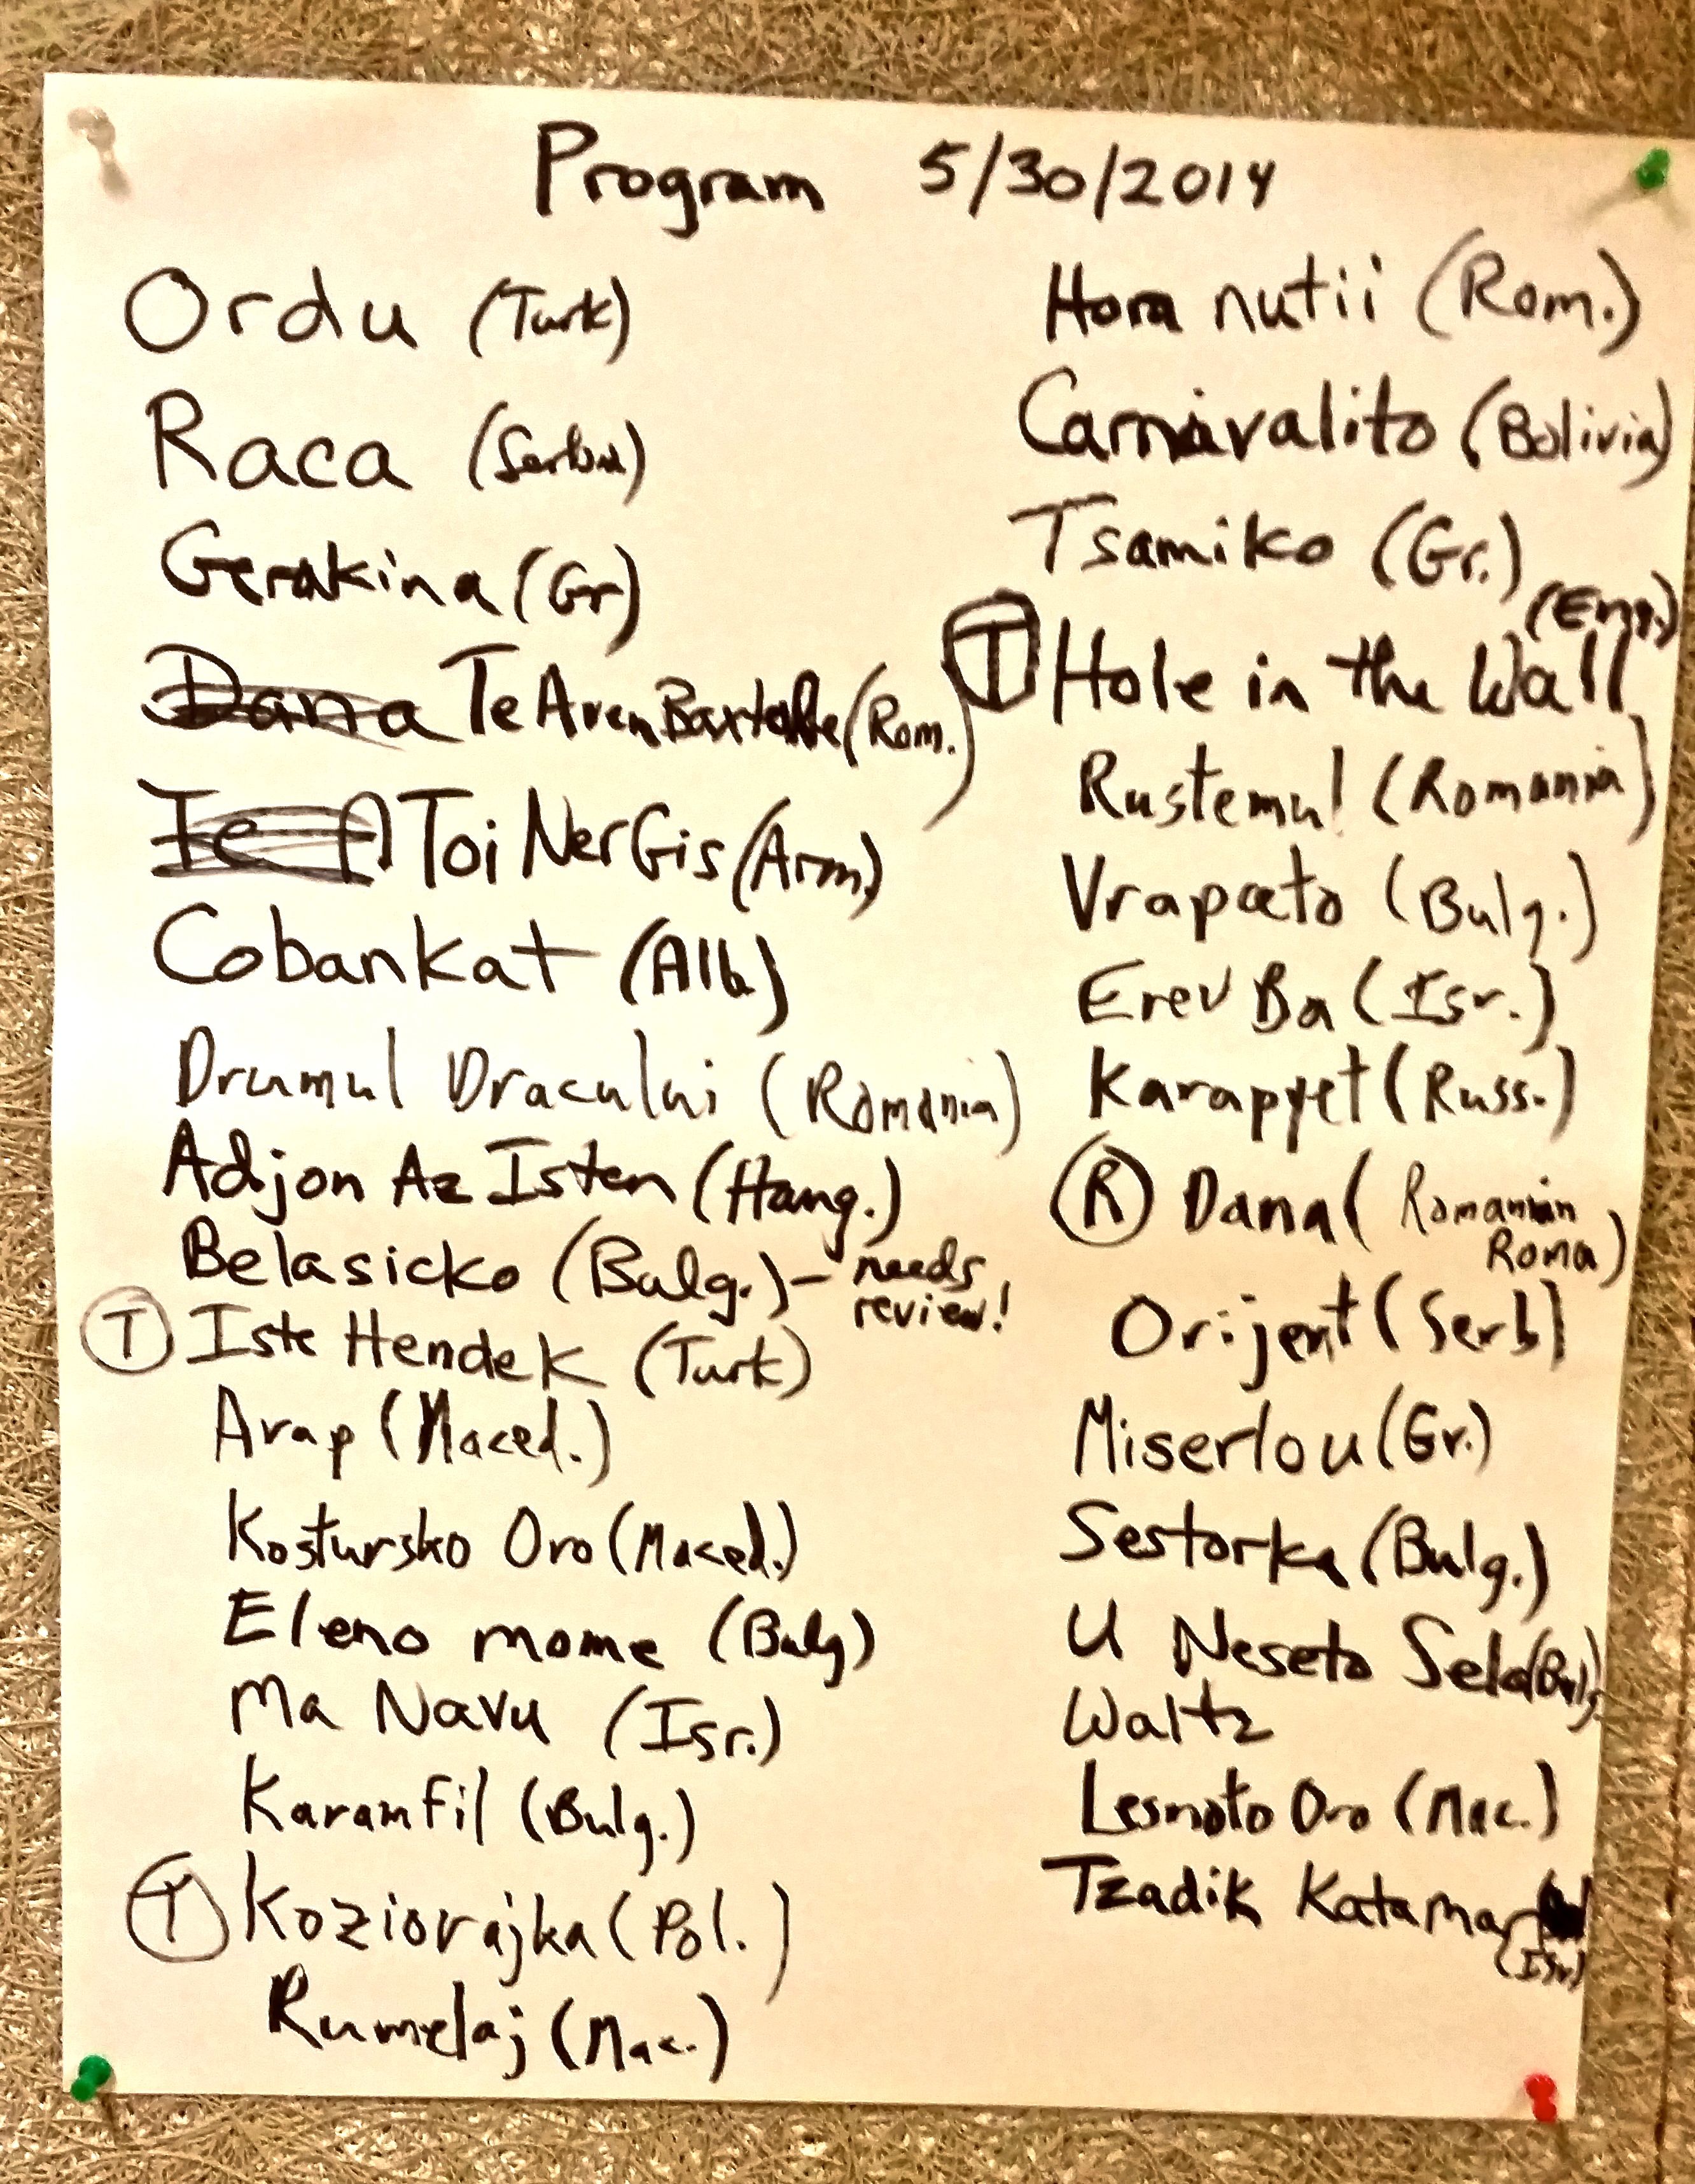 Program 5/30/2014
Ordu (Turk)
Raca (Serbia)
Gerakina (Gr)
Dana Te Aven Baxtalle (Rom.)
Te A Toi Ner Gis (Arm)
Cobankat (Alb)
Drumul Dracului (Romania)
Adjon Az Isten (Hung.)
Belasicko (Bulg.) - needs
review!
T Iste Hendek (Turk)
Arap (Maced.)
Kostursko Oro (Maced.)
Eleno mome (Bulg)
Ma Navu (Isr.)
Karamfil (Bulg.)
T Koziorajka (Pol.)
Rumelaj (Mac.)
Hora nutii (Rom.)
Carnavalito (Bolivia)
Tsamiko (Gr.)
(Eng.)
T Hole in the Wall
Rustemul (Romania)
Vrapceto (Bulg.)
Erev Ba (Isr.)
Karapyet (Russ.)
R Dana (Romanian
Roma)
Orijent (Serb)
Miserlou (Gr.)
Sestorka (Bulg.)
U Neseto Selo (Bulg
Waltz
Lesnoto Oro (Mac.)
Tzadik Katamar
(Isr)